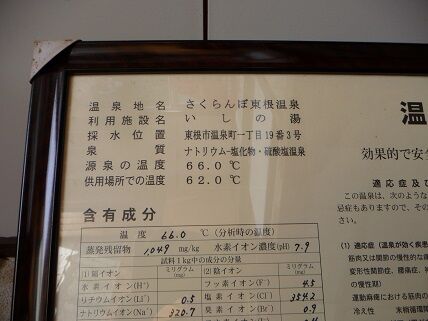 温泉地名 さくらんぼ東根温泉
利用施設名 いしの湯
採水位置 東根市温泉町一丁目19番3号
泉質 ナトリウム-塩化物・硫酸塩温泉
源泉の温度 66.0 ℃
供用場所での温度 62.0 ℃
含有成分
温度 66.0 ℃ (分析時の温度)
蒸発残留物 1049 mg/kg 水素イオン濃度(pH) 7.9
試料1kg中の成分の分量
(1)陽イオン ミリグラム(mg) (2)陰イオン ミリグラム(mg)
水素イオン(H⁺) フッ素イオン(F⁻) 4.5
リチウムイオン(Li⁺) 0.5 塩素イオン(Cl⁻) 354.2
ナトリウムイオン(Na⁺) 320.7 臭素イオン(Br⁻) 0.9
温
効果的で安
適応症及び
この温泉は、次のような
(1) 適応症(温泉が効く疾患
筋肉又は関節の慢性的な痛
変形性関節症、腰痛症、神
の慢性期)
運動麻痺における筋肉の
冷え性 末梢循環